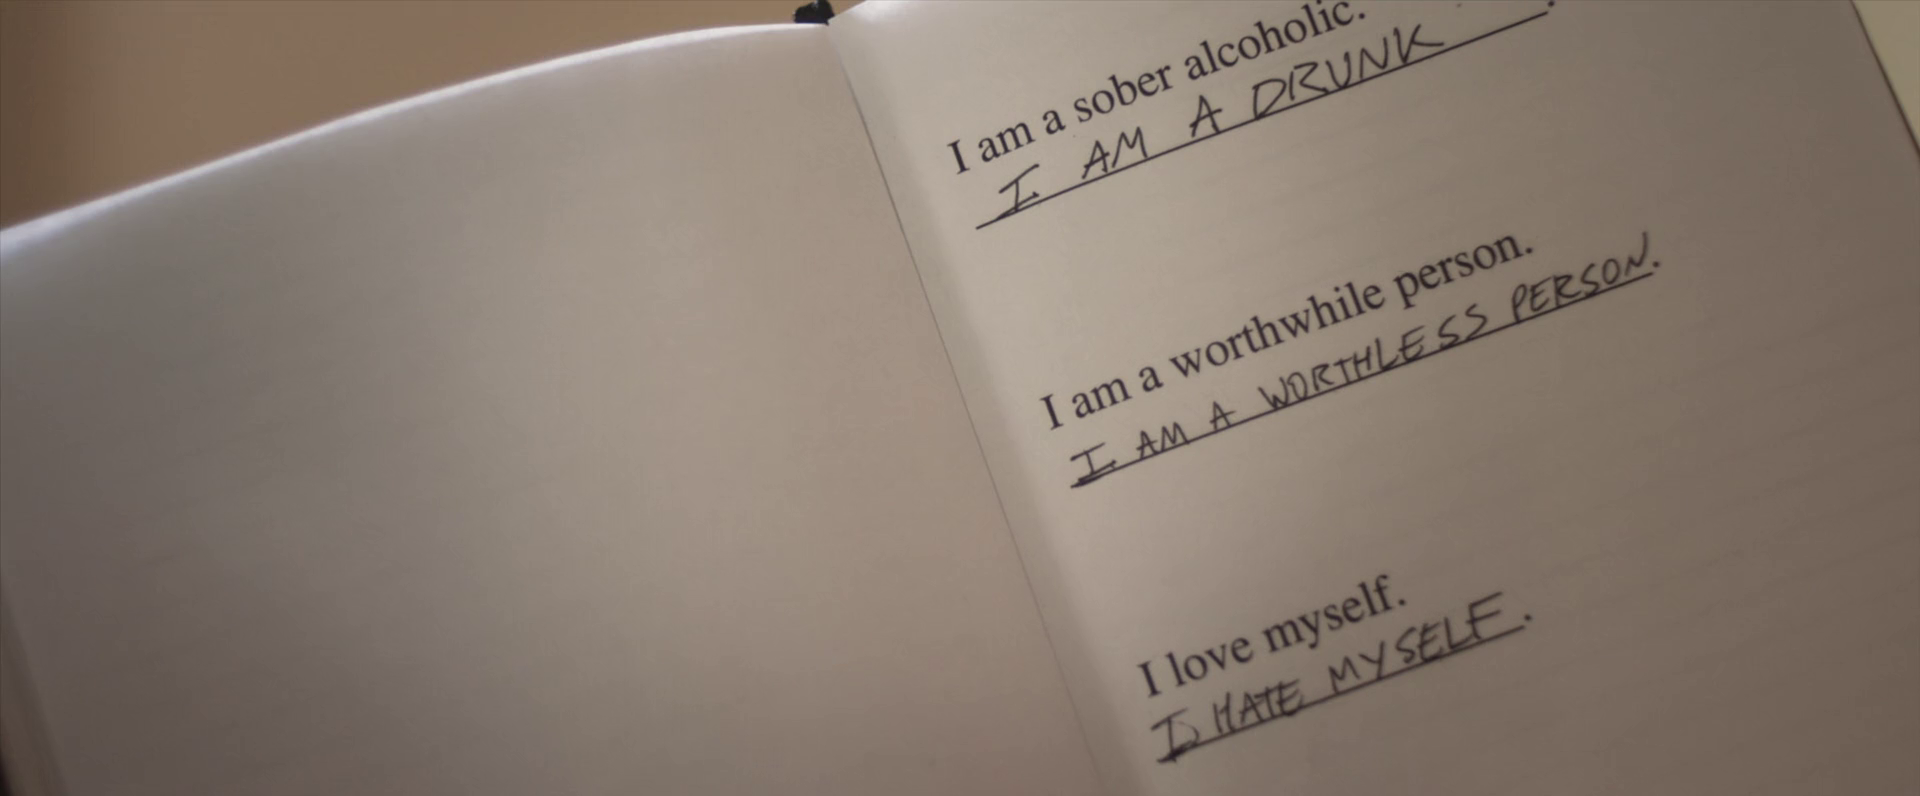 I am a sober alcoholic.
I AM A DRUNK.
I am a worthwhile person.
I AM A WORTHLESS PERSON.
I love myself.
I HATE MYSELF.